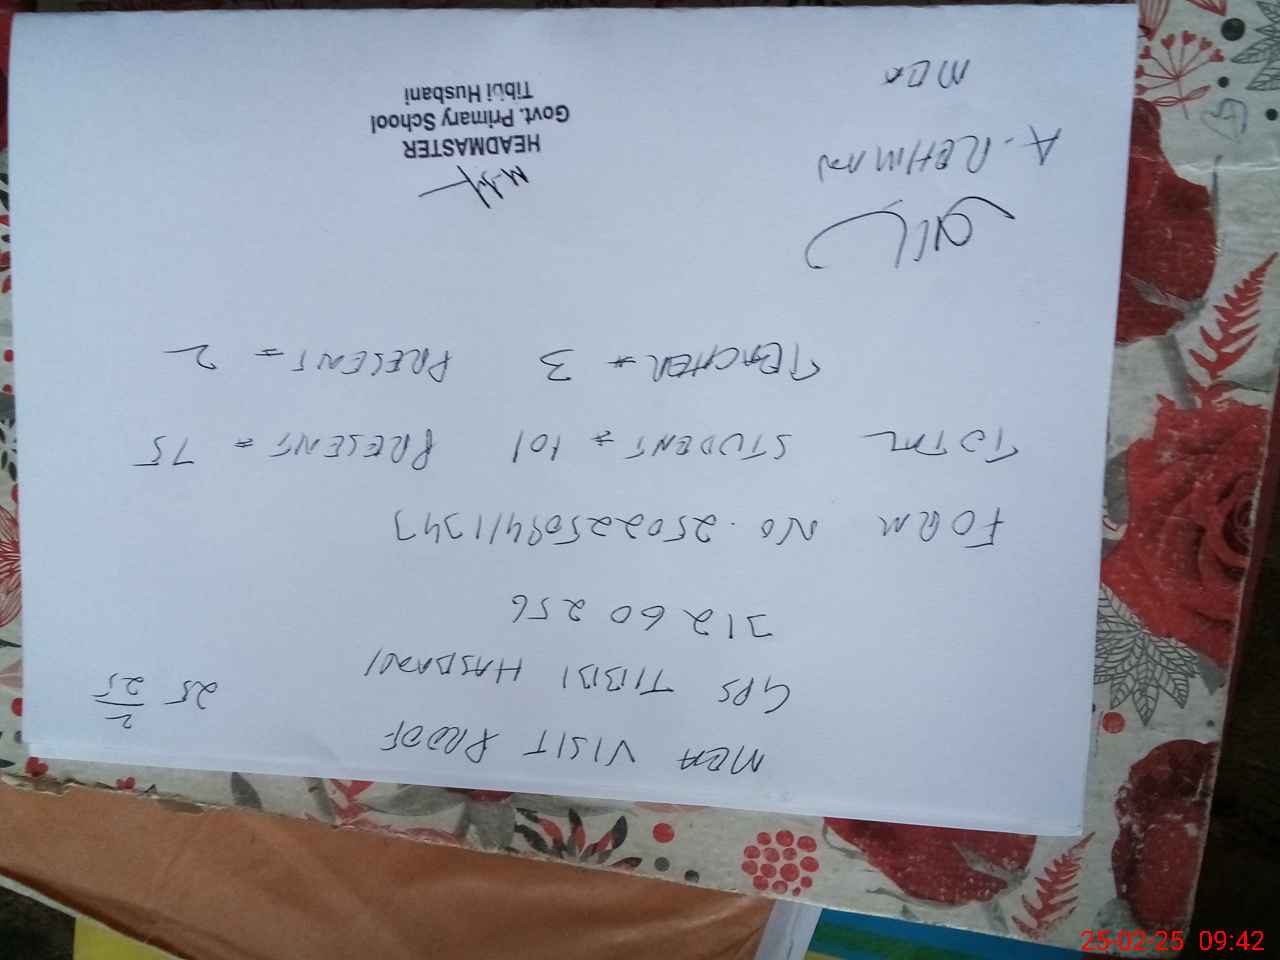 MEA VISIT PROOF
25 2/25
GPS TIBBI HASBANI
31260256
FORM NO. 25022509411343
TOTAL STUDENT = 101 PRESENT = 75
TEACHER = 3 PRESENT = 2
A. REHMAN
MEA
HEADMASTER
Govt. Primary School
Tibbi Husbani
25-02-25 09:42